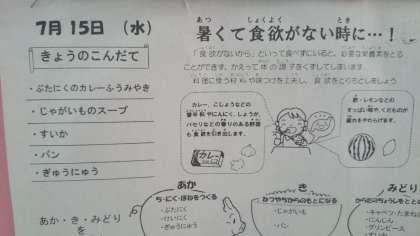 7月15日 (水)
きょうのこんだて
・ぶたにくのカレーふうみやき
・じゃがいものスープ
・すいか
・パン
・ぎゅうにゅう
あつ しょくよく とき
暑くて食欲がない時に…!
「食欲がないから」といって食べずにいると、必要な栄養素をとる
ことができず、かえって体の調子をくずしてしまいます。
料理に使う材料や味つけを工夫し、食欲をとりもどしましょう。
カレー、こしょうなどの
香辛料やにんにく、しょうが、
パセリなどの香りのある野菜
も食欲を引き出します。
カレー
酢・レモンなどの
すっぱい味や、くだものが
疲れをやわらげます。
あか
ち・にく・ほねをつくる
・ぶたにく
・ぎゅうにゅう
き
ねつやちからのもとになる
・じゃがいも
・パン
みどり
からだのちょうしをとと
・キャベツ・たまね
・にんじん
・グリンピース
あか・き・みどり
を